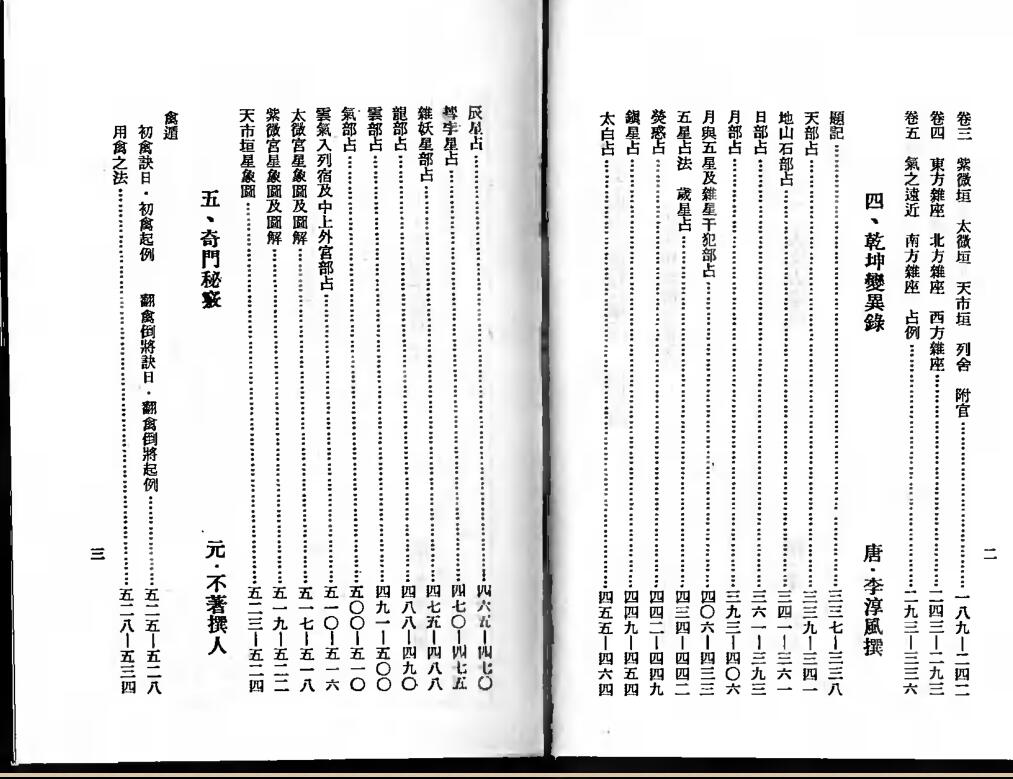 二
卷三　紫微垣　太微垣　天市垣　列舍　附官…………一八九—二四二
卷四　東方雜座　北方雜座　西方雜座…………二四三—二九三
卷五　氣之遠近　南方雜座　占例…………二九三—三三六
四、乾坤變異錄　唐·李淳風撰
題記…………三三七—三三八
天部占…………三三九—三四一
地山石部占…………三四一—三六一
日部占…………三六一—三九三
月部占…………三九三—四〇六
月與五星及雜星干犯部占…………四〇六—四三三
五星占法　歲星占…………四三四—四四二
熒惑占…………四四二—四四九
鎭星占…………四四九—四五四
太白占…………四五五—四六四
辰星占…………四六五—四七〇
彗孛星占…………四七〇—四七五
雜妖星部占…………四七五—四八八
龍部占…………四八八—四九〇
雲部占…………四九一—五〇〇
氣部占…………五〇〇—五一〇
雲氣入列宿及中上外宮部占…………五一〇—五一六
太微宮星象圖及圖解…………五一七—五一八
紫微宮星象圖及圖解…………五一九—五二二
天市垣星象圖…………五二三—五二四
五、奇門秘竅　元·不著撰人
禽遁
初禽訣日·初禽起例　翻禽倒將訣日·翻禽倒將起例…………五二五—五二八
用禽之法…………五二八—五三四
三